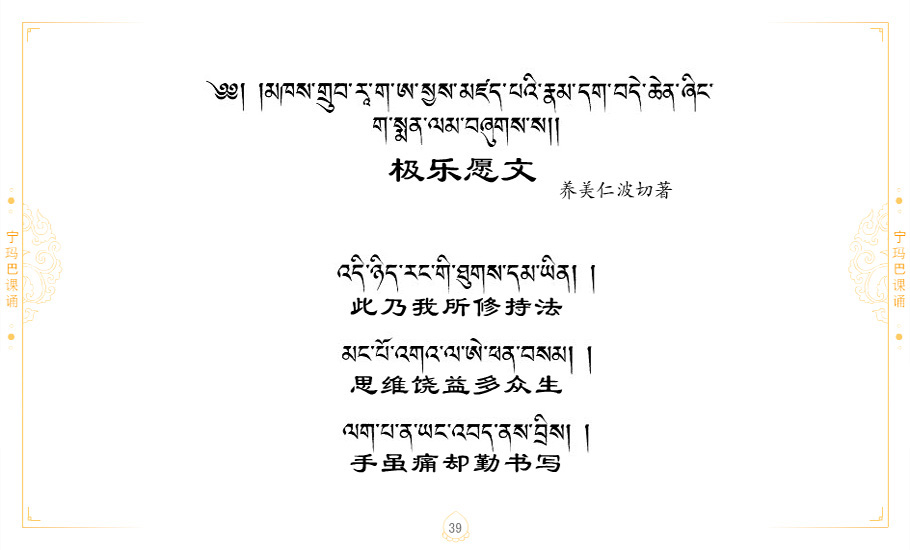 ༄༅། །མཁས་གྲུབ་རཱ་ག་ཨ་སྱས་མཛད་པའི་རྣམ་དག་བདེ་ཆེན་ཞིང་
ག་སྨོན་ལམ་བཞུགས་ས།།
极乐愿文
养美仁波切著
འདི་ཉིད་རང་གི་ཐུགས་དམ་ཡིན། །
此乃我所修持法
མང་པོ་འགའ་ལ་ཨེ་ཕན་བསམ། །
思维饶益多众生
ལག་པ་ན་ཡང་འབད་ནས་བྲིས། །
手虽痛却勤书写
宁玛巴课诵
宁玛巴课诵
39